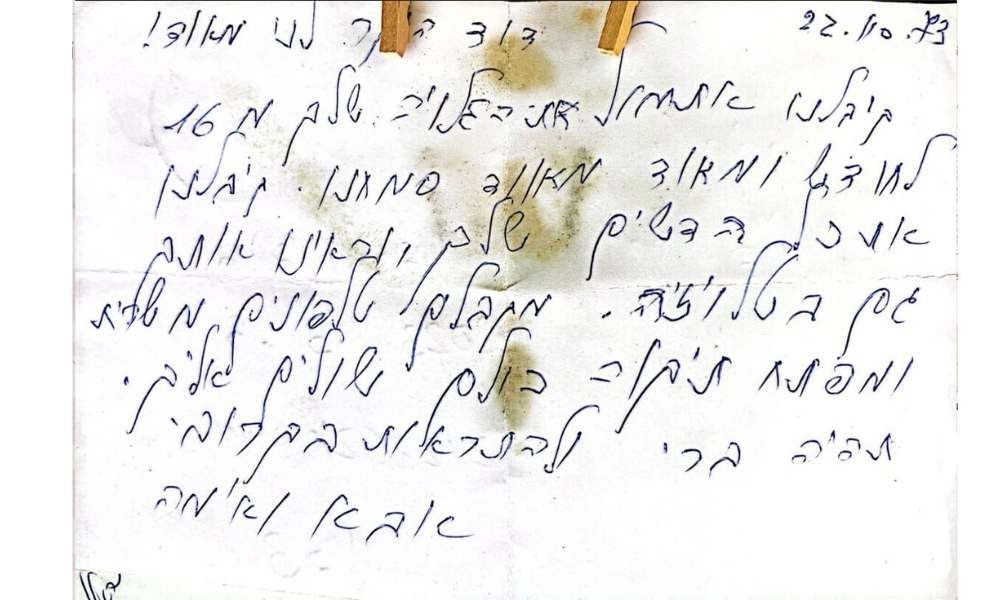 22.10.73
דוד היקר לנו מאוד!
קיבלנו אתמול את הגלויה שלך מ 16
לחודש ומאוד מאוד שמחנו. קיבלנו
את כל הדשים שלך, וראינו אותך
גם בטלויזיה. מקבלים טלפונים
ומפתח תיקוה כולם שואלים אליך.
תהיה ברי ולהתראות בקרוב!
אבא ואימא